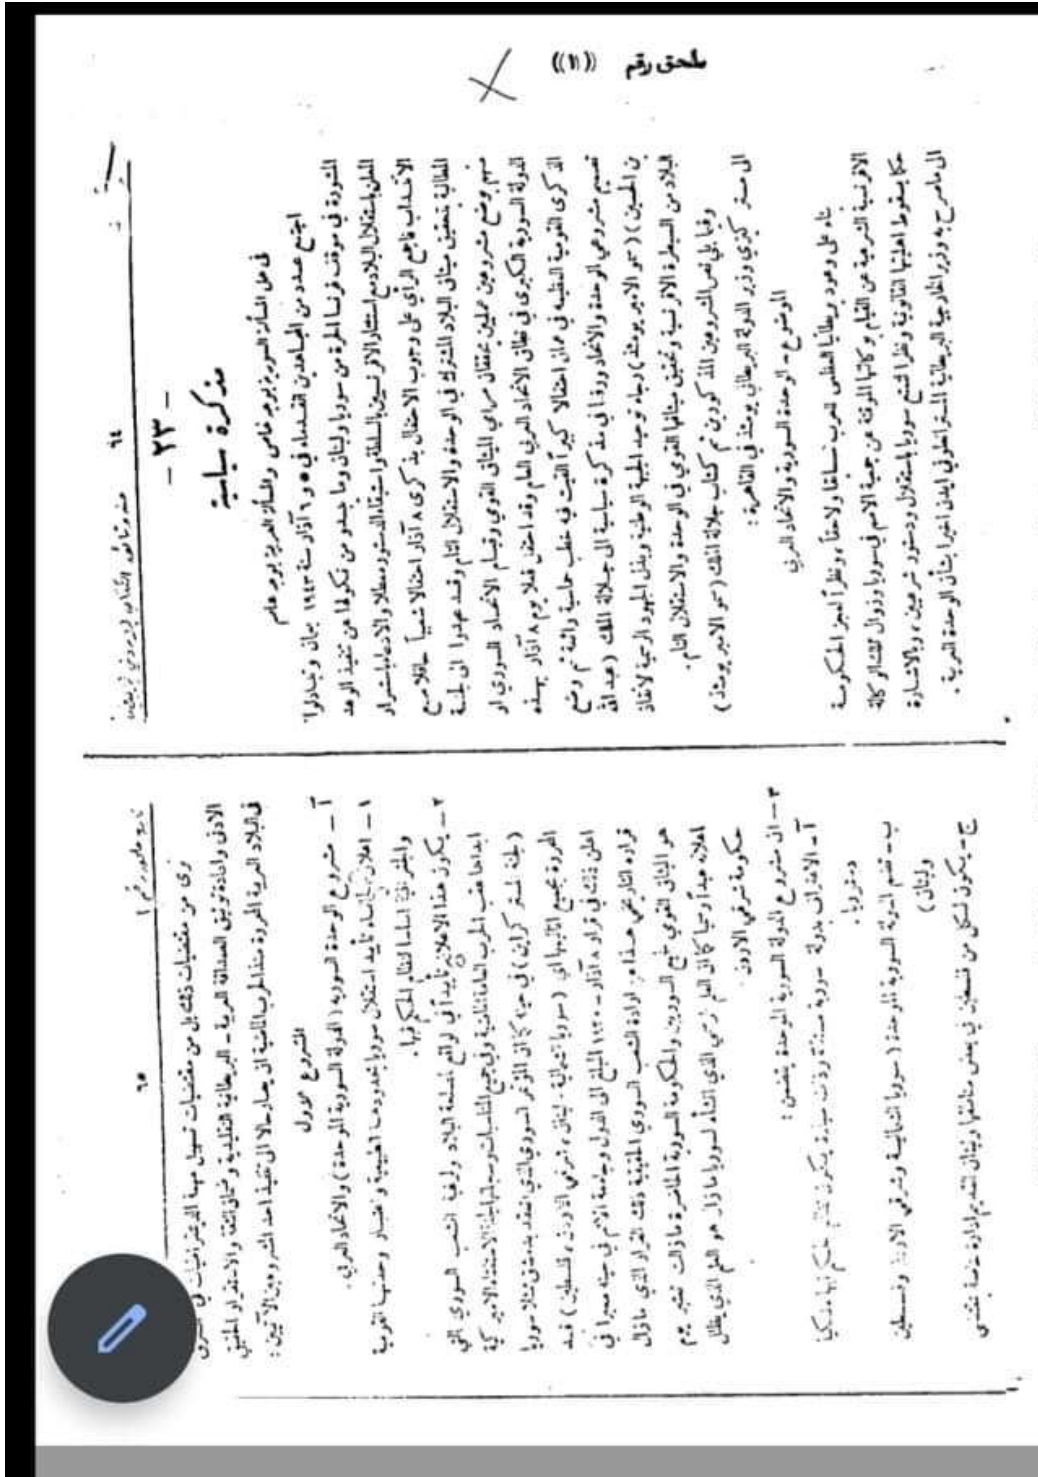 ملحق رقم ((١))
٦٤
— ٢٣ —
مذكرة سياسية
في حل المسألة السورية بوجه خاص والمسألة العربية بوجه عام
اجتمع عدد من المجاهدين القدماء في ٥ و ٦ آذار سنة ١٩٤٣ بعمان وتبادلوا
المشورة في موقف فرنسا الحرة من سوريا ولبنان وما يبدو من نكولها عن تنفيذ الوعد
المعلن باستقلال البلاد مع استئثار الافرنسيين بالسلطة واستبقاء الدستور معطلا والادعاء باستمرار
الانتداب فاجمع الرأي على وجوب الاحتفال بذكرى ٨ آذار احتفالا شعبياً حافلا مع
المطالبة بتحقيق ميثاق البلاد المشترك في الوحدة والاستقلال التام وقد عهدوا الى لجنة
منهم بوضع مشروعين عمليين يحققان مرامي الميثاق القومي وقيام الاتحاد السوري او
الدولة السورية الكبرى في نطاق الاتحاد العربي العام وقد احتفل فعلا يوم ٨ آذار بهذه
الذكرى القومية العظيمة في عمان احتفالا كبيراً القيت فيه خطب حماسية رائعة ثم وضع
تصميم مشروعي الوحدة والاتحاد ورفعا في مذكرة سياسية الى جلالة الملك (عبد الله
بن الحسين) (سمو الامير يومئذ) رجاء توحيد الجبهة الوطنية وبذل الجهود الرسمية لانقاذ
البلاد من السيطرة الافرنسية وتحقيق ميثاقها القومي في الوحدة والاستقلال التام.
وفيما يلي نص المشروعين المذكورين ثم كتاب جلالة الملك (سمو الامير يومئذ)
الى مستر كيزي وزير الدولة البريطاني يومئذ في القاهرة:
الموضوع - الوحدة السورية والاتحاد العربي
بناء على وعود بريطانيا العظمى للعرب سابقا ولاحقاً، ونظراً لعجز الحكومة
الافرنسية الشرعية عن القيام بوكالتها الموقتة عن جمعية الامم في سوريا وزوال تلك الوكالة
حكما بسقوط اهليتها القانونية ونظرا لتمتع سوريا باستقلال ودستور شرعيين، وبالاشارة
الى ما صرح به وزير الخارجية البريطانية المستر ايدن اخيرا بشأن الوحدة العربية.
٦٥
نرى من مقتضيات ذلك بل من مقتضيات تسهيل مهمة الديمقراطيات في الشرق
الادنى واعادة توثيق الصداقة العربية - البريطانية التقليدية وتحقق الثقة والاستقرار الحقيقي
في البلاد العربية المحررة منذ الحرب الماضية ان يصار حالا الى تنفيذ احد المشروعين الآتيين:
المشروع الاول
آ - مشروع الوحدة السورية (الدولة السورية الموحدة) والاتحاد العربي.
١ - اعلان تأييد استقلال سوريا بحدودها الطبيعية واعتبار وحدتها القومية
والجغرافية اساسا لنظام الحكم فيها.
٢ - يكون هذا الاعلان تأييداً لواقع مصلحة البلاد ولرغبة الشعب السوري التي
ابداها عقب الحرب العامة الماضية وفي جميع المناسبات وسجلتها لجنة الاستفتاء الاميركية
(لجنة المستر كراين) في حينه كما ان المؤتمر السوري الذي انعقد بدمشق ممثلا سوريا
المحررة بجميع اقاليمها اي (سوريا الشمالية - لبنان، شرقي الاردن، فلسطين) قد
اعلن ذلك في قرار ٨ آذار - ١٩٢٠ المبلغ الى الدول وجامعة الامم في حينه معبرا في
قراره التاريخي هذا عن ارادة الشعب السوري الحقيقية ذلك القرار الذي ما زال
هو الميثاق القومي لجميع السوريين والحكومة السورية الحاضرة ما زالت تعتبر يوم
اعلانه عيداً رسميا كما ان العلم الرسمي الذي انشأه لسوريا ما زال هو العلم الذي يظلل
حكومة شرقي الاردن.
٣ - ان مشروع الدولة السورية الموحدة يتضمن:
آ - الاعتراف بدولة سورية مستقلة وذات سيادة يكون نظام الحكم فيها ملكيا
دستوريا.
ب - تضم الدولة السورية الموحدة (سوريا الشمالية وشرقي الاردن وفلسطين
ولبنان)
ج - يكون لكل من فلسطين في بعض مناطقها ولبنان القديم ادارة خاصة بمقتضى